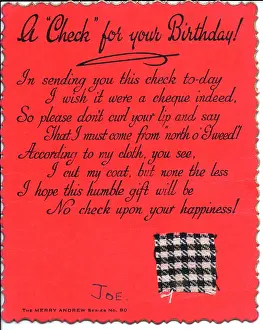 A "Check" for your Birthday!
In sending you this check to-day
I wish it were a cheque indeed,
So please don't curl your lip and say
That I must come from "north o' Tweed"!
According to my cloth, you see,
I cut my coat, but none the less
I hope this humble gift will be
No check upon your happiness!
JOE.
THE MERRY ANDREW SERIES No. 80